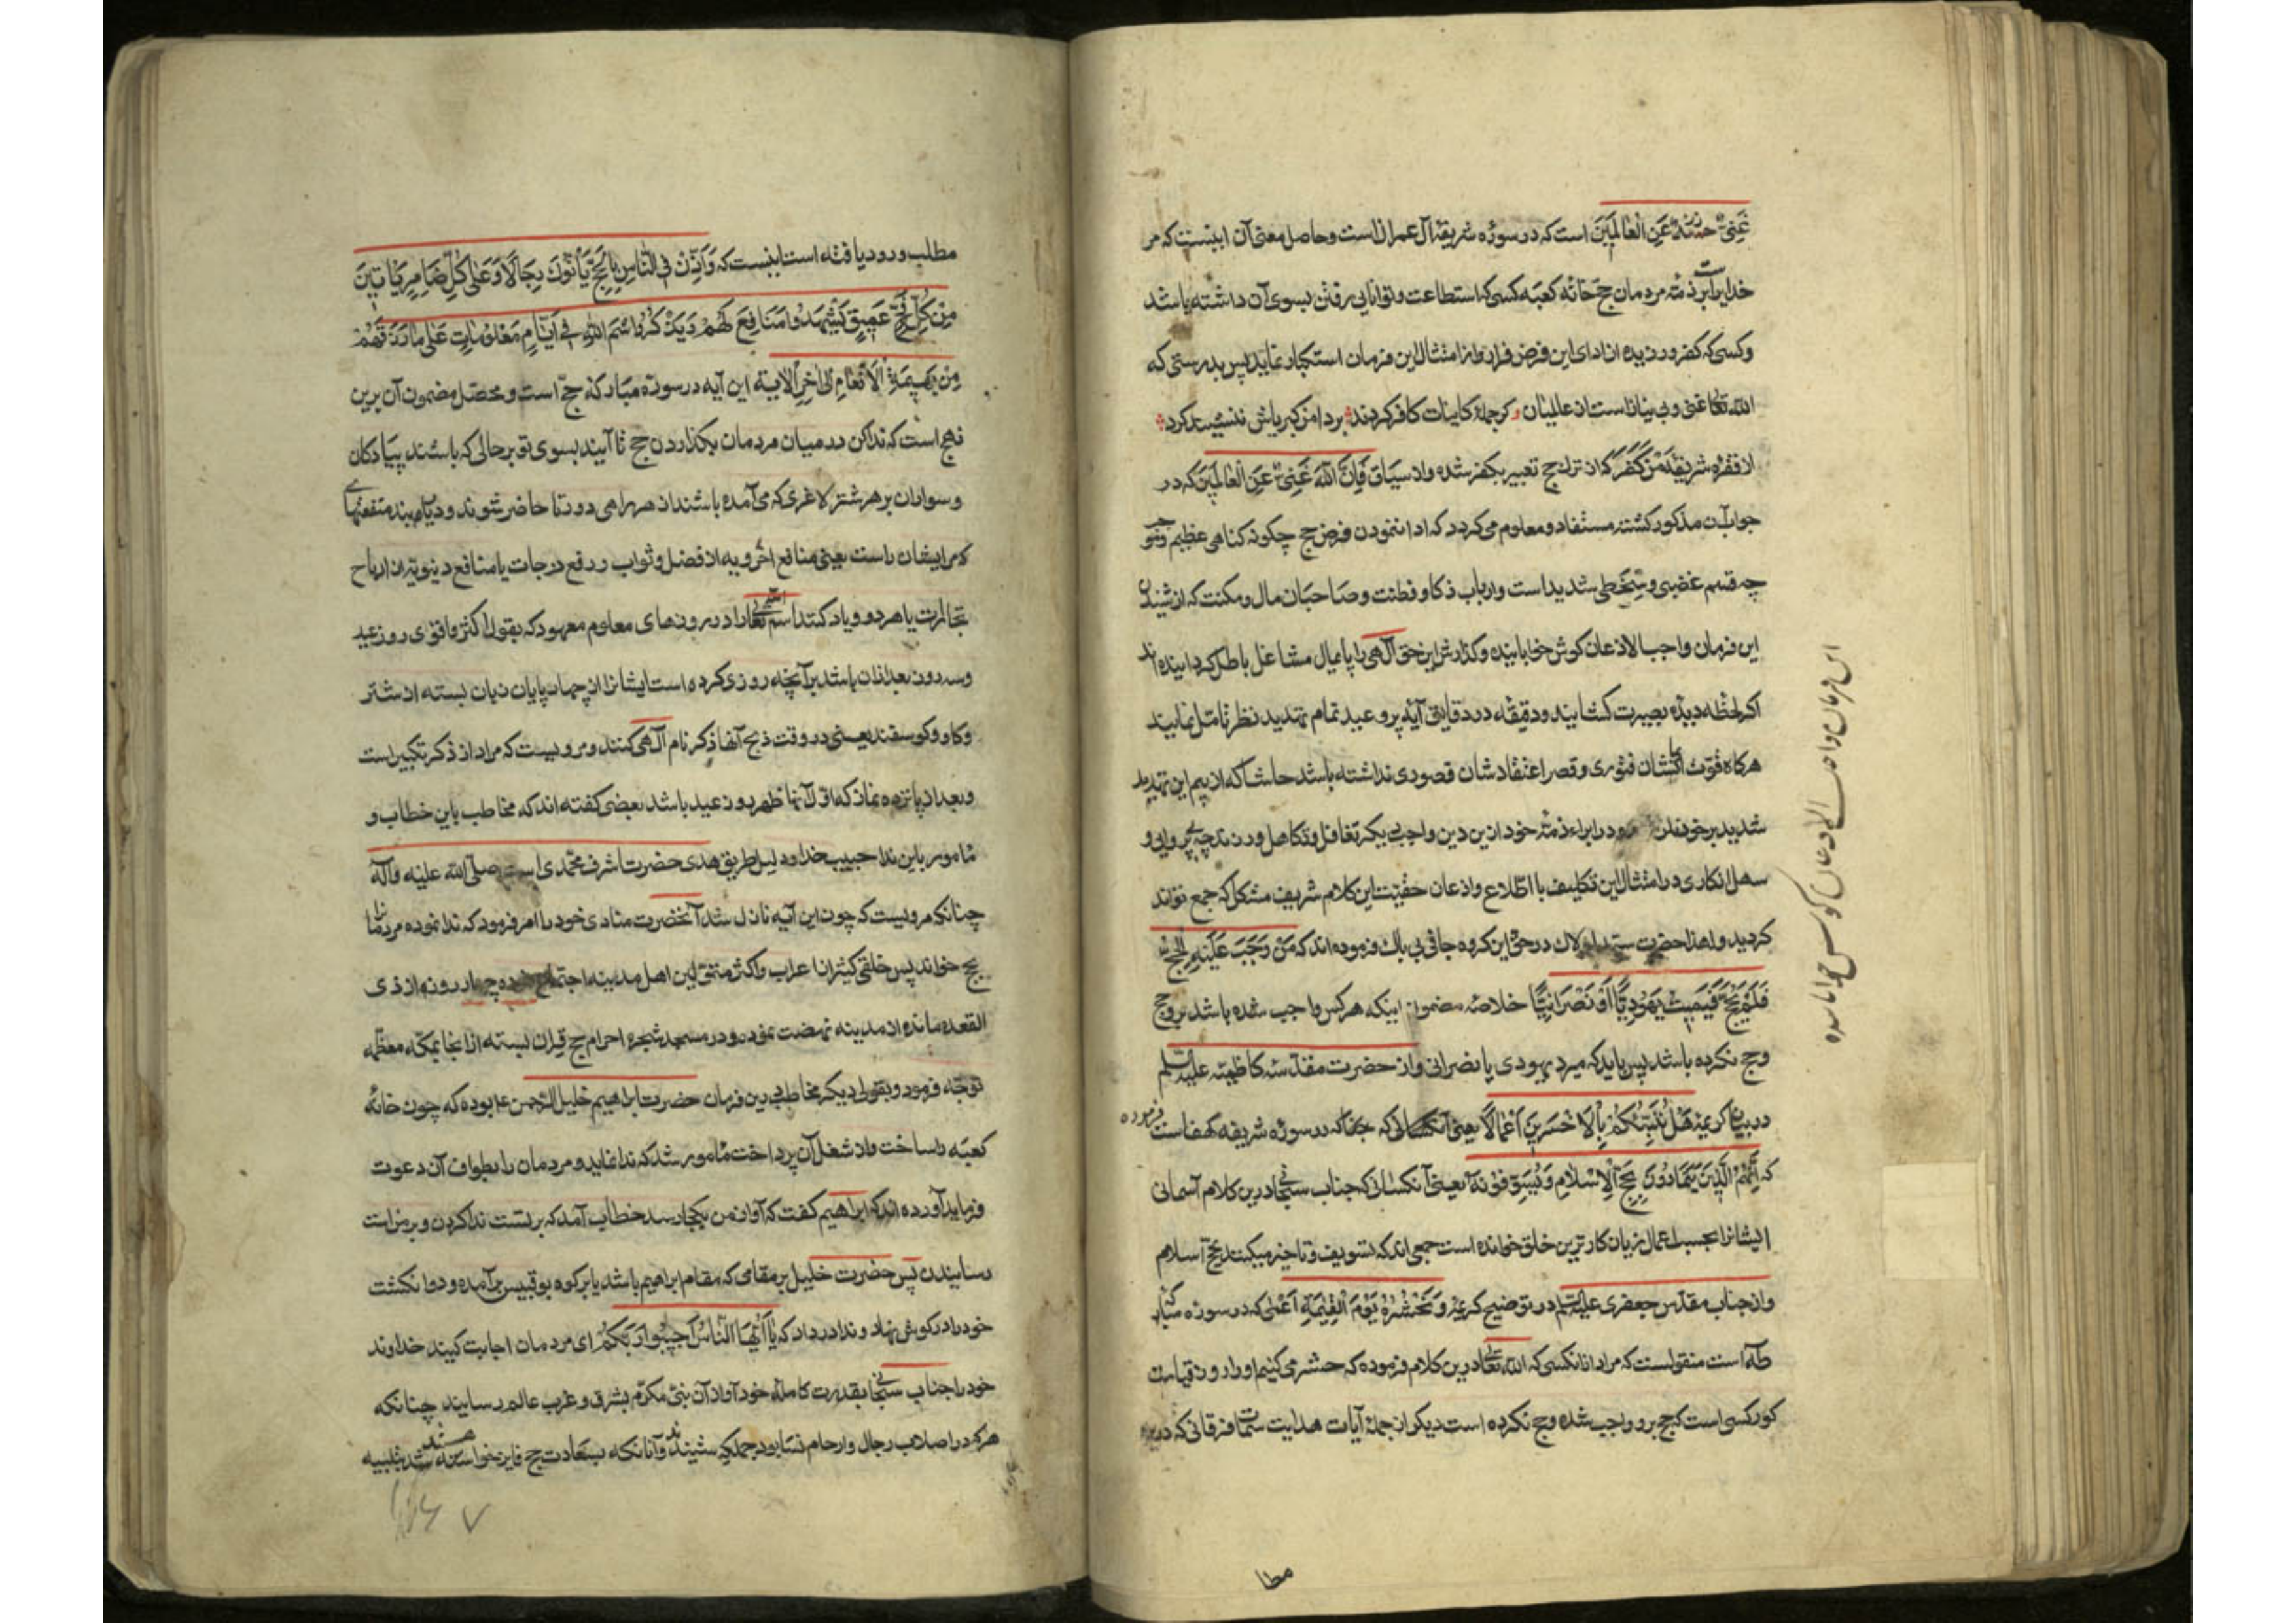 غَنِیٌّ عَنِ الْعَالَمِینَ است که در سورهٔ شریفهٔ آل عمران است و حاصل معنی آن اینست که مر
خدایراست بر ذمّهٔ مردمان حج خانهٔ کعبه کسی که استطاعت و توانایی رفتن بسوی آن داشته باشد
و کسی که کفر ورزیده از ادای این فرض فرار و از امتثال این فرمان استکبار نماید پس بدرستی که
الله تعالی غنی و بی نیاز است از عالمیان کر جملهٔ کاینات کافر کردند بر دامن کبریاش ننشیند کرد
از فقرهٔ شریفهٔ مَنْ كَفَرَ که از ترک حج تعبیر بکفر شده و از سیاق فَإِنَّ اللهَ غَنِیٌّ عَنِ الْعَالَمِینَ که در
جواب آن مذکور کشته مستفاد و معلوم می کردد که ادا ننمودن فرض حج چکونه کناهی عظیم و موجب
چه قسم غضبی و سخطی شدید است و ارباب ذکا و فطنت و صاحبان مال و مکنت که از شنیدن
این فرمان واجب الاذعان کوش خوابانیده و کذارش این حق الهی را پایمال مشاغل باطل کردانیده اند
اکر لحظهٔ دیدهٔ بصیرت کشایند و دقیقهٔ در دقایق آیهٔ پر وعید تمام تهدید نظر تأمل نمایند
هرکاه قوت ایمانشان فتوری و قصر اعتقادشان قصوری نداشته باشد حاشا که از بیم این تهدید
شدید بر خود نلرزند و در ابراء ذمّهٔ خود ازین دین واجبی دیکر تغافل و تکاهل ورزند چه بی پروایی و
سهل انکاری در امتثال این تکلیف با اطلاع و اذعان حقیت این کلام شریف مشکل که جمع تواند
کردید و لهذا حضرت در حق این کروه جافی بی باک فرموده اند که مَنْ وَجَبَ عَلَیْهِ الْحَجُّ
فَلَمْ یَحُجَّ فَلْیَمُتْ یَهُودِیًّا أَوْ نَصْرَانِیًّا خلاصهٔ مضمون اینکه هر کس واجب شده باشد برو حج
و حج نکرده باشد پس باید که میرد یهودی یا نصرانی و از حضرت مقدسهٔ کاظمیه علیه السلم
در بیان کریمهٔ هَلْ نُنَبِّئُكُمْ بِالْأَخْسَرِینَ أَعْمَالًا که در سورهٔ شریفهٔ کهف است فرموده
که إِنَّهُمُ الَّذِینَ یَتَمَادَوْنَ بِحَجِّ الْإِسْلَامِ وَ یُسَوِّفُونَهُ یعنی آنکسانی که جناب سبحانی درین کلام آسمانی
ایشانرا بحسب اعمال زیان کارترین خلق خوانده است جمعی اند که تسویف و تاخیر میکنند حج اسلام
و از جناب مقدس جعفری علیه السلم در توضیح کریمهٔ وَ نَحْشُرُهُ یَوْمَ الْقِیمَةِ أَعْمَى که در سورهٔ مبارکهٔ
طه است منقولست که مراد از آنکسی که الله تعالی درین کلام فرموده که حشر می کنیم او را روز قیامت
کور کسی است که حج برو واجب شده و حج نکرده است دیکر از جملهٔ آیات هدایت سمات فرقانی که درین
این فرمان واجب الاذعان کوش خوابانیده
مطلب ورود یافته است اینست که وَ أَذِّنْ فِی النَّاسِ بِالْحَجِّ یَأْتُوكَ رِجَالًا وَ عَلَى كُلِّ ضَامِرٍ یَأْتِینَ
مِنْ كُلِّ فَجٍّ عَمِیقٍ لِیَشْهَدُوا مَنَافِعَ لَهُمْ وَ یَذْكُرُوا اسْمَ اللهِ فِی أَیَّامٍ مَعْلُومَاتٍ عَلَى مَا رَزَقَهُمْ
مِنْ بَهِیمَةِ الْأَنْعَامِ الی آخر الآیة این آیه در سورهٔ مبارکهٔ حج است و محصل مضمون آن برین
نهج است که ندا کن در میان مردمان بکذاردن حج تا آیند بسوی تو بر حالی که باشند پیادکان
و سواران بر هر شتر لاغری که می آمده باشند از هر راهی دور تا حاضر شوند و دریابند منفعتهای
که مر ایشان راست یعنی منافع اخرویه از فضل و ثواب و رفع درجات یا منافع دنیویه از ارباح
تجارت یا هر دو و یاد کنند اسم الله تعالی را در روزهای معلوم معهود که بقول اکثر و اقوی روز عید
و سه روز بعد از آن باشد بر آنچه روزی کرده است ایشانرا از چهارپایان زبان بسته از شتر
و کاو و کوسفند یعنی در وقت ذبح آنها ذکر نام الهی کنند و مرویست که مراد از ذکر تکبیر است
و بعد از پانزده نماز که اول آنها ظهر روز عید باشد بعضی کفته اند که مخاطب باین خطاب و
مأمور باین ندا حبیب خدا و دلیل طریق هدی حضرت اشرف محمدی است صلی الله علیه و آله
چنانکه مرویست که چون این آیه نازل شد آنحضرت منادی خود را امر فرمود که ندا نموده مردمانرا
بحج خواند پس خلقی کثیر از اعراب و اکثر متوطنین اهل مدینه اجتماع نموده چهار روز از ذی
القعده مانده از مدینه نهضت نمود و در مسجد شجره احرام حج قران بسته از آنجا بمکهٔ معظمه
توجه فرمود و بقولی دیکر مخاطب بدین فرمان حضرت ابراهیم خلیل الرحمن ع بوده که چون خانهٔ
کعبه را ساخت و از شغل آن پرداخت مأمور شد که ندا نماید و مردمان را بطواف آن دعوت
فرماید آورده اند که ابراهیم کفت که آواز من بکجا رسد خطاب آمد که بر تست ندا کردن و بر من است
رسانیدن پس حضرت خلیل بر مقامی که مقام ابراهیم باشد یا بر کوه بوقبیس بر آمده و دو انکشت
خود را در کوش نهاد و ندا در داد که یَا أَیُّهَا النَّاسُ أَجِیبُوا رَبَّكُمْ ای مردمان اجابت کنید خداوند
خود را جناب سبحانی بقدرت کاملهٔ خود آواز آن نبی مکرم بشرق و غرب عالم رسانید چنانکه
هر که در اصلاب رجال و ارحام نسا بود جملکی شنیدند و آنانکه بسعادت حج فایز خواستند شد بتلبیه
مطا